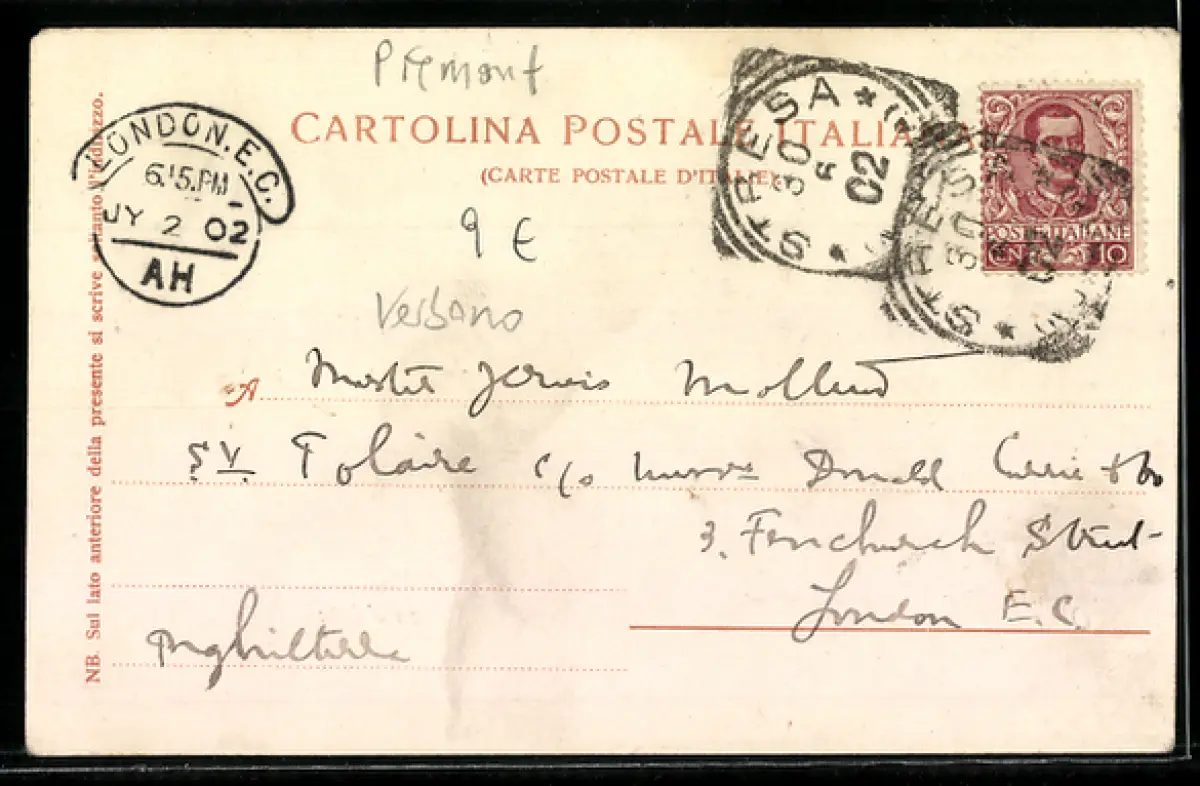 Piemont
CARTOLINA POSTALE ITALIANA
(CARTE POSTALE D'ITALIE)
LONDON.E.C.
6.15.PM
JY 2 02
AH
STRESA
30 6 02
STRESA
30 6 02
POSTE ITALIANE
CEN 10
9 €
Verbano
A Jervis
S.Y. Iolaire c/o Messrs Donald Currie & Co
3. Fenchurch Street
London E.C.
Inghilterra
NB. Sul lato anteriore della presente si scrive soltanto l'indirizzo.